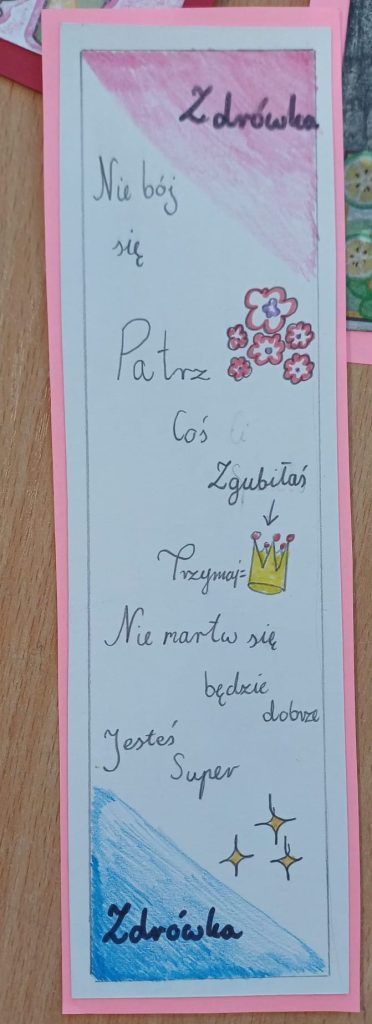 Zdrówka
Nie bój
się
Patrz
Coś
Zgubiłaś
Trzymaj=
Nie martw się
będzie
dobrze
Jesteś
Super
Zdrówka